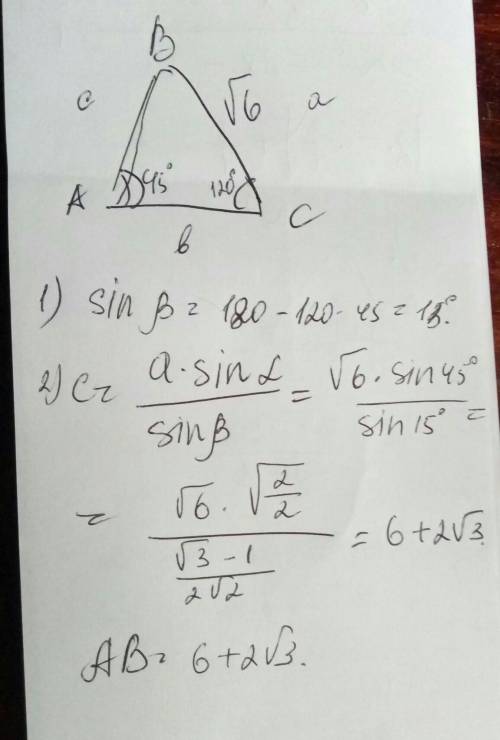 B
c √6 a
A 45° 120° C
b
1) sin β = 180 - 120 - 45 = 15°.
2) C = a · sin α / sin β = √6 · sin 45° / sin 15° =
= √6 · √(2/2) / ((√3 - 1) / 2√2) = 6 + 2√3.
AB = 6 + 2√3.